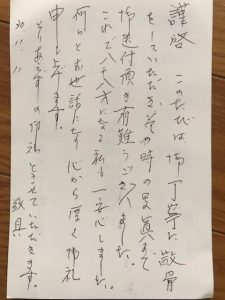 謹啓 このたびは、御丁寧に散骨
をしていただき、その時の写真まで
御送付頂き有難うございました。
これで八十八才になる私も一安心しました。
何かとお世話になり心から厚く御礼
申し上げます。
とりあえず御礼とさせていただきます。
敬具
30.11.11